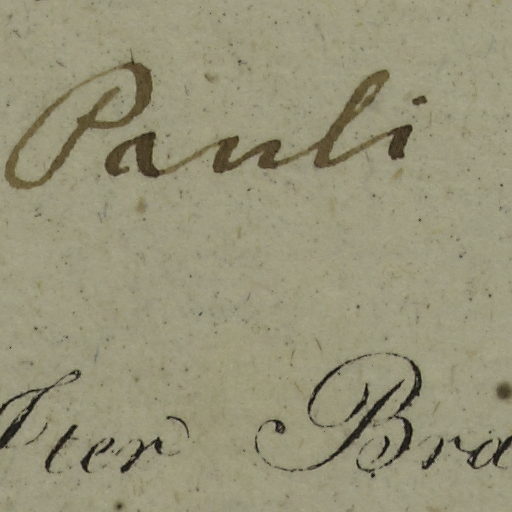 Pauli
Iter Bra